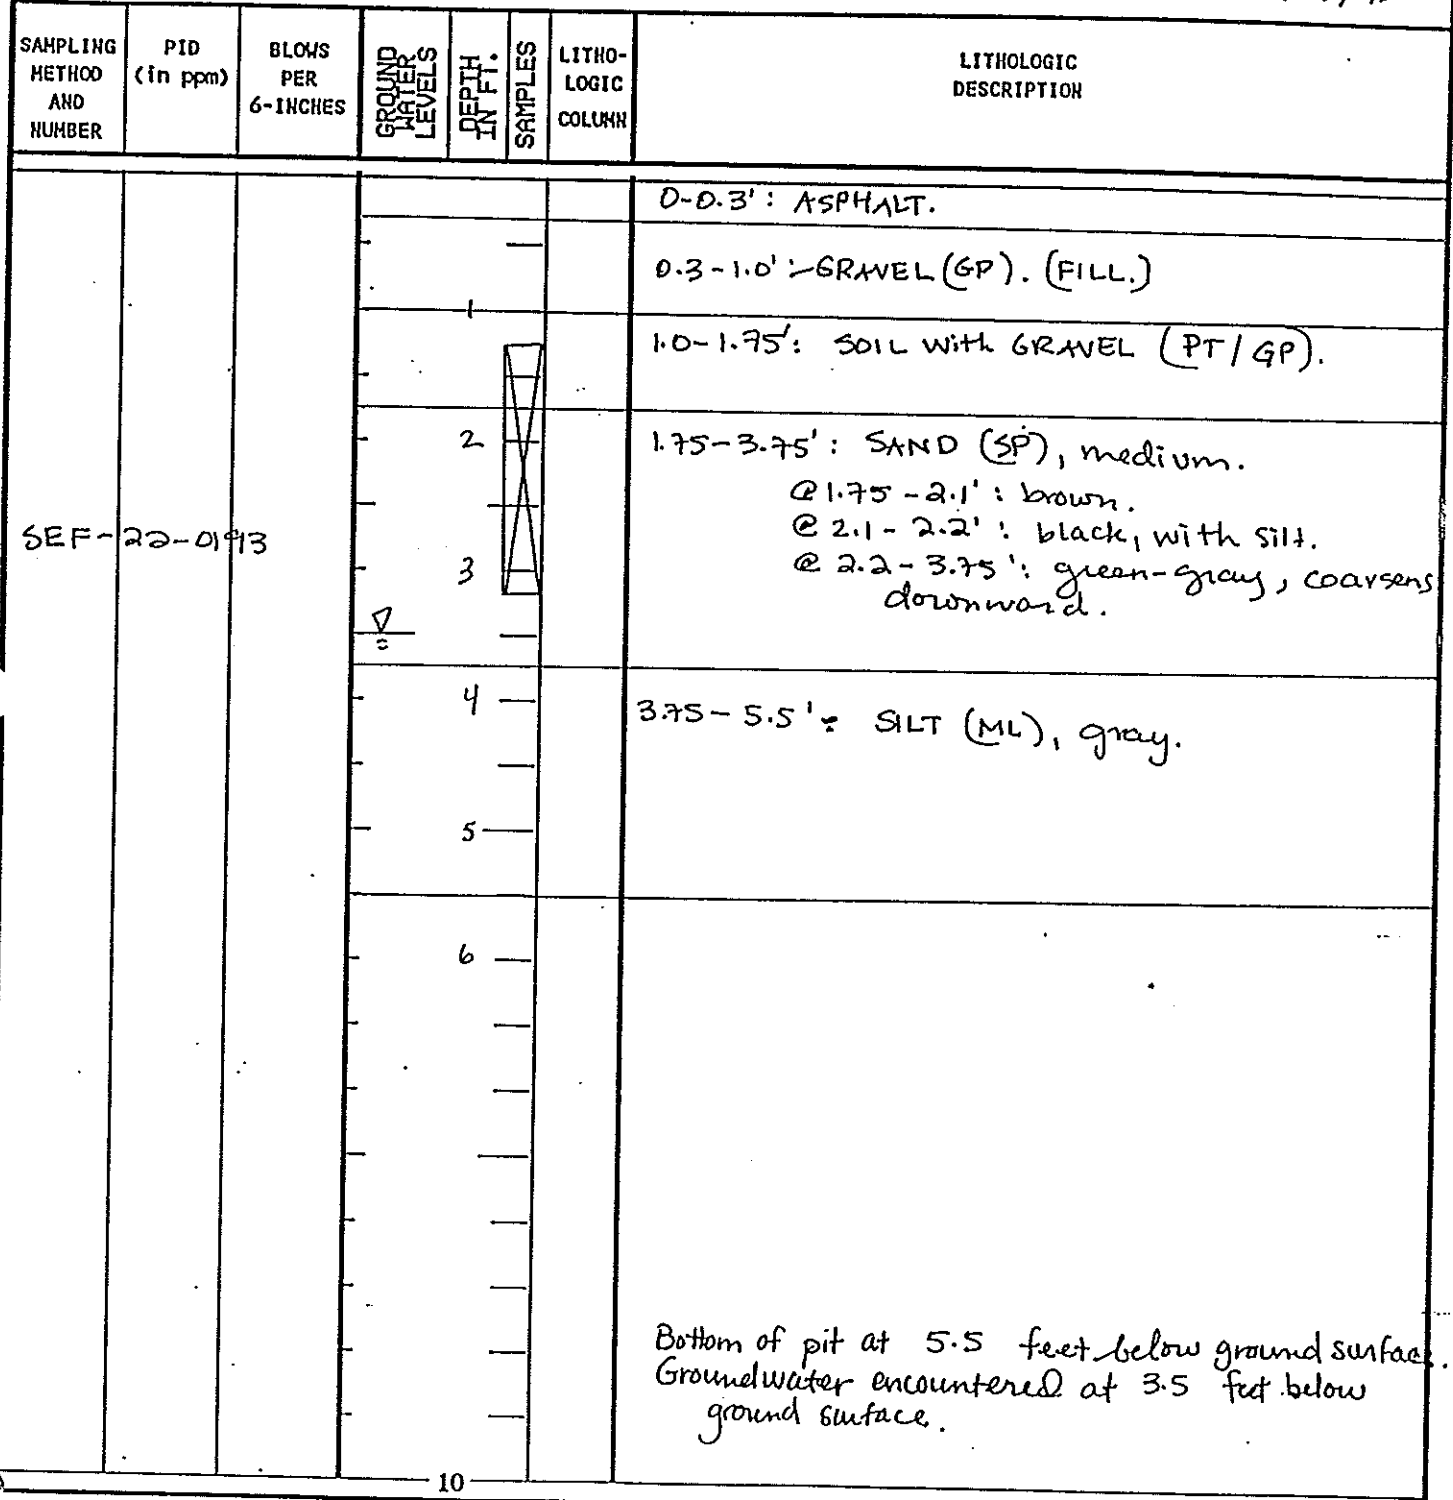 SAMPLING METHOD AND NUMBER
PID (in ppm)
BLOWS PER 6-INCHES
GROUND WATER LEVELS
DEPTH IN FT.
SAMPLES
LITHO-LOGIC COLUMN
LITHOLOGIC DESCRIPTION
0-0.3': ASPHALT.
0.3-1.0': GRAVEL (GP). (FILL.)
1
1.0-1.75': SOIL with GRAVEL (PT/GP).
2
1.75-3.75': SAND (SP), medium.
@ 1.75-2.1': brown.
@ 2.1-2.2': black, with silt.
SEF-22-0193
3
@ 2.2-3.75': green-gray, coarsens
downward.
4
3.75-5.5': SILT (ML), gray.
5
6
Bottom of pit at 5.5 feet below ground surface.
Groundwater encountered at 3.5 feet below
ground surface.
10